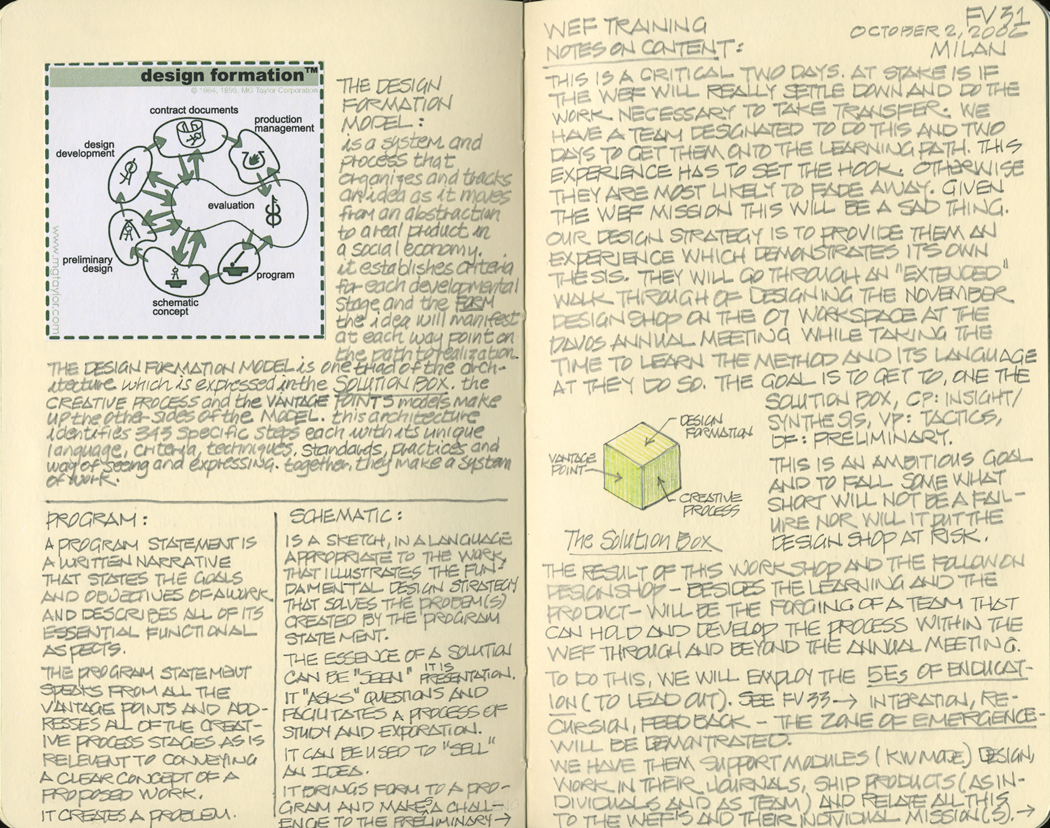 design formation™
© 1984, 1995, MG Taylor Corporation
contract documents
production
management
design
development
evaluation
preliminary
design
program
schematic
concept
www.mgtaylor.com
THE DESIGN
FORMATION
MODEL:
is a system and
process that
organizes and tracks
an idea as it moves
from an abstraction
to a real product in
a social economy.
it establishes criteria
for each developmental
stage and the FORM
the idea will manifest
at each way point on
the path to realization.
THE DESIGN FORMATION MODEL is one triad of the arch-
itecture which is expressed in the SOLUTION BOX. the
CREATIVE PROCESS and the VANTAGE POINTS models make
up the other sides of the MODEL. this architecture
identifies 343 specific steps each with its unique
language, criteria, techniques, standards, practices and
way of seeing and expressing. together, they make a system
of work.
PROGRAM:
A PROGRAM STATEMENT IS
A WRITTEN NARRATIVE
THAT STATES THE GOALS
AND OBJECTIVES OF A WORK
AND DESCRIBES ALL OF ITS
ESSENTIAL FUNCTIONAL
ASPECTS.
THE PROGRAM STATEMENT
SPEAKS FROM ALL THE
VANTAGE POINTS AND ADD-
RESSES ALL OF THE CREAT-
IVE PROCESS STAGES AS IS
RELEVENT TO CONVEYING
A CLEAR CONCEPT OF A
PROPOSED WORK.
IT CREATES A PROBLEM.
SCHEMATIC:
IS A SKETCH, IN A LANGUAGE
APPROPRIATE TO THE WORK,
THAT ILLUSTRATES THE FUN-
DAMENTAL DESIGN STRATEGY
THAT SOLVES THE PROBEM(S)
CREATED BY THE PROGRAM
STATEMENT.
THE ESSENCE OF A SOLUTION
CAN BE "SEEN" IT IS PRESENTATION.
IT "ASKS" QUESTIONS AND
FACILITATES A PROCESS OF
STUDY AND EXPORATION.
IT CAN BE USED TO "SELL"
AN IDEA.
IT BRINGS FORM TO A PRO-
GRAM AND MAKES A CHALL-
ENCE TO THE PRELIMINARY →
FV 31
WEF TRAINING OCTOBER 2, 2006
NOTES ON CONTENT: MILAN
THIS IS A CRITICAL TWO DAYS. AT STAKE IS IF
THE WEF WILL REALLY SETTLE DOWN AND DO THE
WORK NECESSARY TO TAKE TRANSFER. WE
HAVE A TEAM DESIGNATED TO DO THIS AND TWO
DAYS TO GET THEM ONTO THE LEARNING PATH. THIS
EXPERIENCE HAS TO SET THE HOOK. OTHERWISE
THEY ARE MOST LIKELY TO FADE AWAY. GIVEN
THE WEF MISSION THIS WILL BE A SAD THING.
OUR DESIGN STRATEGY IS TO PROVIDE THEM AN
EXPERIENCE WHICH DEMONSTRATES IT'S OWN
THESIS. THEY WILL GO THROUGH AN "EXTENDED"
WALK THROUGH OF DESIGNING THE NOVEMBER
DESIGN SHOP ON THE 07 WORKSPACE AT THE
DAVOS ANNUAL MEETING WHILE TAKING THE
TIME TO LEARN THE METHOD AND ITS LANGUAGE
AT THEY DO SO. THE GOAL IS TO GET TO, ONE THE
SOLUTION BOX, CP: INSIGHT/
SYNTHESIS, VP: TACTICS,
DF: PRELIMINARY.
DESIGN
FORMATION
VANTAGE
POINT
CREATIVE
PROCESS
The Solution Box
THIS IS AN AMBITIOUS GOAL
AND TO FALL SOME WHAT
SHORT WILL NOT BE A FAIL-
URE NOR WILL IT PUT THE
DESIGN SHOP AT RISK.
THE RESULT OF THIS WORKSHOP AND THE FOLLOW ON
DESIGNSHOP - BESIDES THE LEARNING AND THE
PRODUCT - WILL BE THE FORGING OF A TEAM THAT
CAN HOLD AND DEVELOP THE PROCESS WITHIN THE
WEF THROUGH AND BEYOND THE ANNUAL MEETING.
TO DO THIS, WE WILL EMPLOY THE 5Es OF ENDUCAT-
ION (TO LEAD OUT). SEE FV 33 → INTERATION, RE-
CURSION, FEED BACK - THE ZONE OF EMERGENCE -
WILL BE DEMONTRATED.
WE HAVE THEM SUPPORT MODULES (KW MODE) DESIGN,
WORK IN THEIR JOURNALS, SHIP PRODUCTS (AS IN-
DIVIDUALS AND AS TEAM) AND RELATE ALL THIS
TO THE WEF'S AND THEIR INDIVIDUAL MISSION(S). →